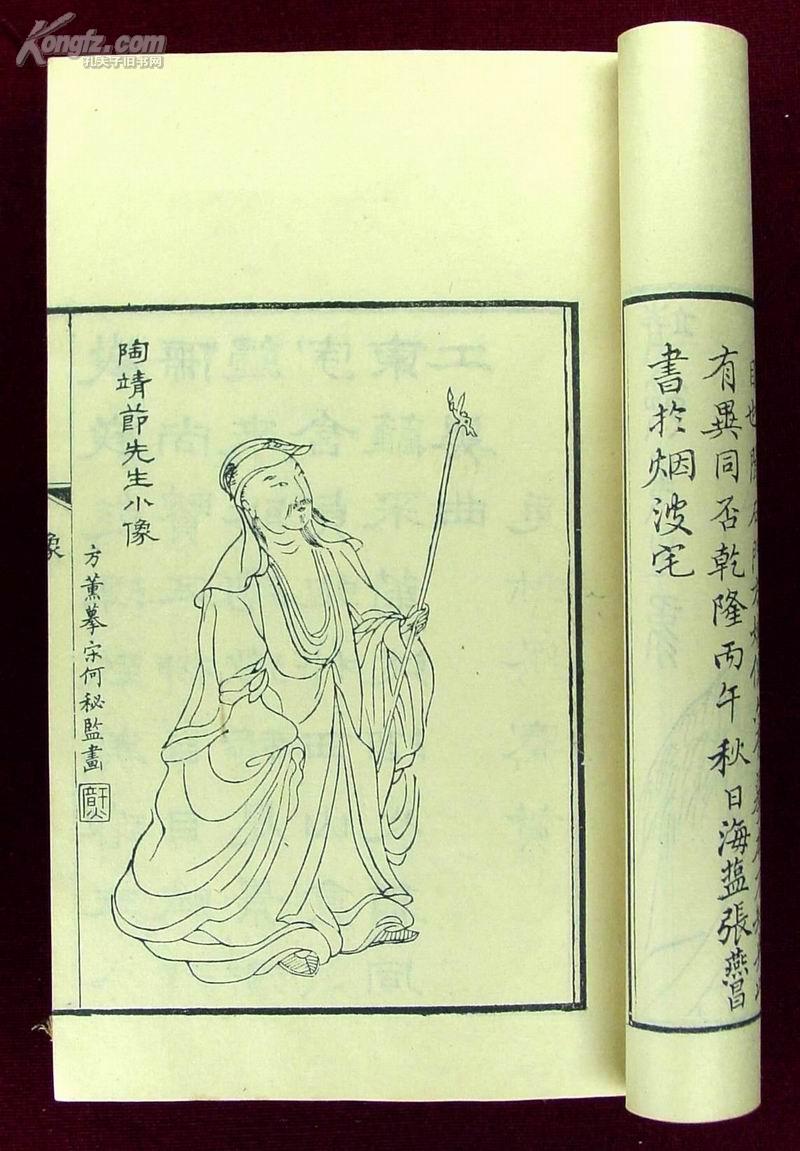 Kongfz.com
孔夫子旧书网
有異同否乾隆丙午秋日海盐張燕昌
書於烟波宅
陶靖節先生小像
方薰摹宋何秘監畫
像